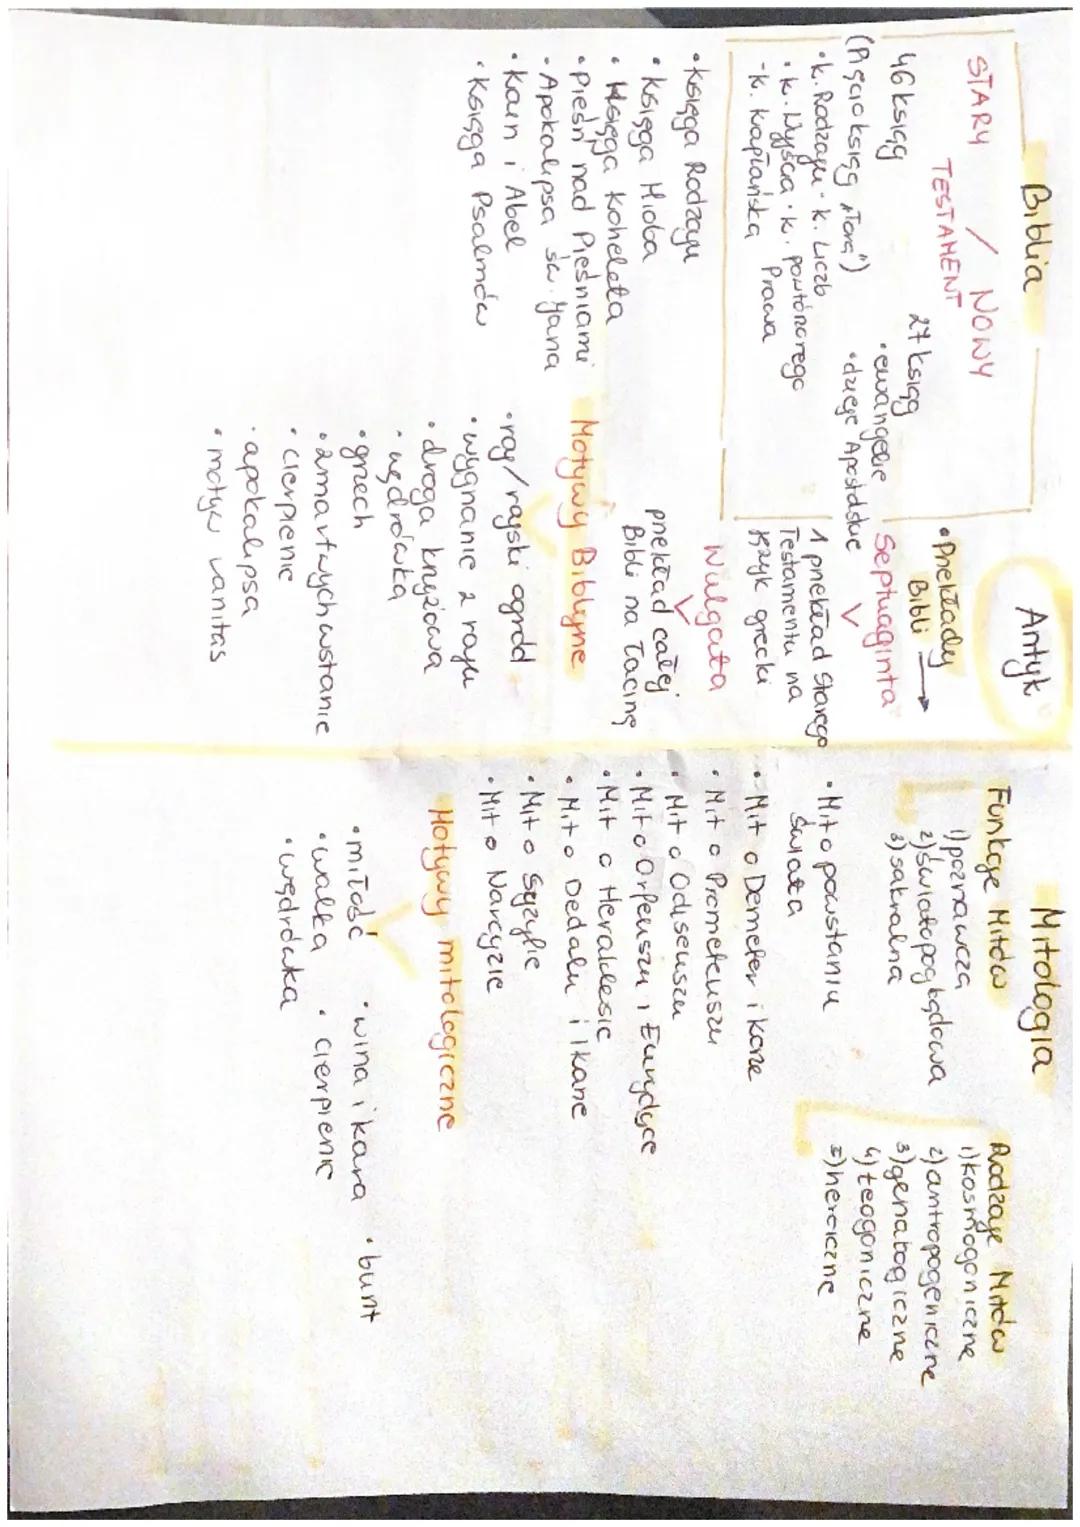 Antyk
Biblia
STARY / NOWY
TESTAMENT
46 ksiąg
(Pięcioksiąg "Tora")
• k. Rodzaju • k. Liczb
• k. Wyjścia • k. powtórzonego
- k. kapłańska Prawa
27 ksiąg
• ewangelie
• dzieje Apostolskie
• Księga Rodzaju
• Księga Hioba
• Księga Koheleta
• Pieśń nad Pieśniami
• Apokalipsa św. Jana
• Kain i Abel
• Księga Psalmów
• Przekłady
Bibli →
Septuaginta
1 przekład Starego
Testamentu na
język grecki
Wulgata
przekład całej
Bibli na łacinę
Motywy Biblijne
• raj/rajski ogród
• wygnanie z raju
• droga krzyżowa
• wędrówka
• grzech
• zmartwychwstanie
• cierpienie
• apokalipsa
• motyw vanitas
Mitologia
Funkcje Mitów
1) poznawcza
2) światopoglądowa
3) sakralna
Rodzaje Mitów
1) kosmogoniczne
2) antropogeniczne
3) genealogiczne
4) teogoniczne
5) heroiczne
• Mit o powstaniu
świata
• Mit o Demeter i korze
• Mit o Prometeuszu
• Mit o Odiseuszu
• Mit o Orfeuszu i Eurydyce
• Mit o Heraklesie
• Mit o Dedalu i Ikarze
• Mit o Syzyfie
• Mit o Narcyzie
Motywy mitologiczne
• miłość • wina i kara • bunt
• walka • cierpienie
• wędrówka